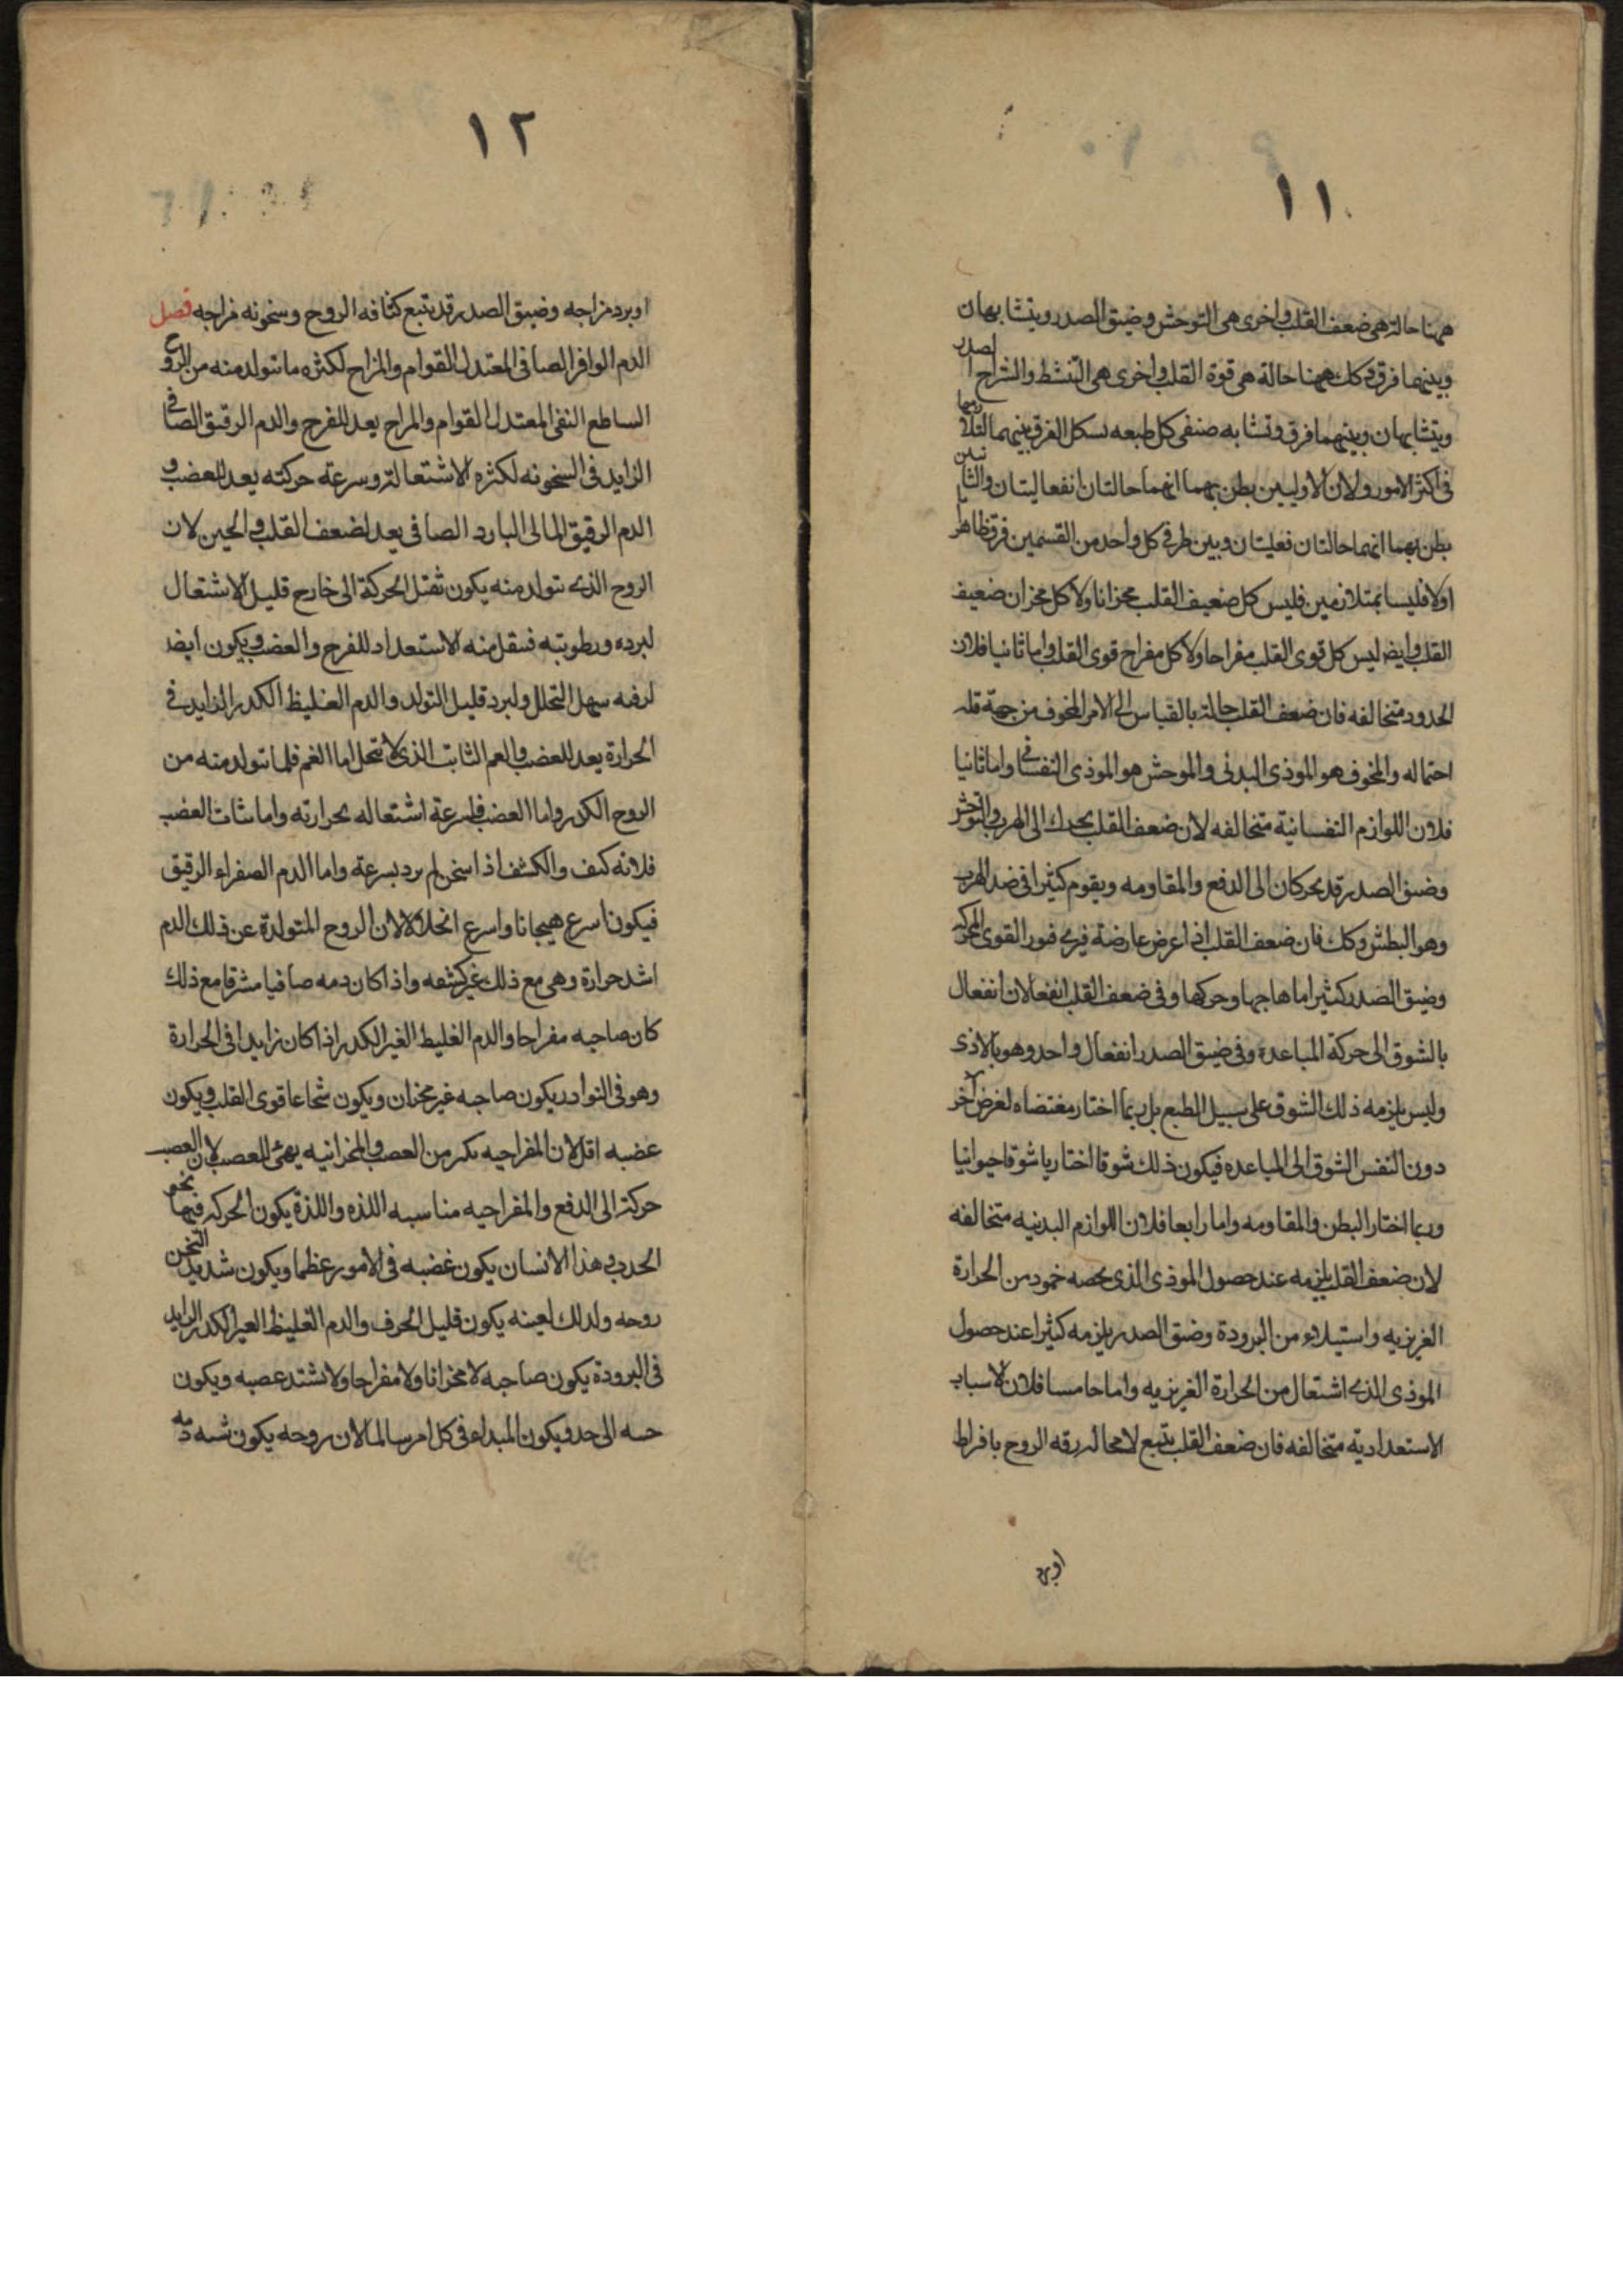 ١١
ههنا حالة هى ضعف القلب واخرى هى التوحش وضيق الصدر ويتشابهان
وبينهما فرق وكك ههنا حالة هى قوة القلب واخرى هى التنشط وانشراح الصدر
ويتشابهان وبينهما فرق وتشابه صنفى كل طبعه سكل الفرق بينهما لتلازمهما
فى اكثر الامور ولان الاوليين يظن بهما انهما حالتان انفعاليتان والثانيتين
يظن بهما انهما حالتان فعليتان وبين طرفى كل واحد من القسمين فرق ظاهر
اولا فليسا بمتلازمين فليس كل ضعيف القلب محزانا ولا كل محزان ضعيف
القلب وايضا ليس كل قوى القلب مفراحا ولا كل مفراح قوى القلب واما ثانيا فلان
الحدود متخالفه فان ضعف القلب حالة بالقياس الى الامر المخوف من جهة قلة
احتماله والمخوف هو الموذى البدنى والموحش هو الموذى النفسانى واما ثانيا
فلان اللوازم النفسانية متخالفه لان ضعف القلب يحرك الى الهرب والتوحش
وضيق الصدر قد يحركان الى الدفع والمقاومه ويقوم كثيرا فى ضد الهرب
وهو البطش وكك فان ضعف القلب اذا عرض عارضة فربما فتور القوى المحركه
وضيق الصدر كثيرا ما هاجها وحركها وفى ضعف القلب انفعالان انفعال
بالشوق الى حركة المباعدة وفى ضيق الصدر انفعال واحد وهو بالاذى
وليس يلزمه ذلك الشوق على سبيل الطبع بل ربما اختار مقتضاه لغرض آخر
دون النفس الشوق الى المباعده فيكون ذلك شوقا اختياريا شوقا حيوانيا
وربما اختار البطن والمقاومه واما رابعا فلان اللوازم البدنيه متخالفه
لان ضعف القلب يلزمه عند حصول الموذى الذى يخصه خمود من الحرارة
الغريزيه واستيلاء من البرودة وضيق الصدر يلزمه كثيرا عند حصول
الموذى الذى اشتعال من الحرارة الغريزيه واما خامسا فلان الاسباب
الاستعدادية متخالفه فان ضعف القلب يتبع لا محاله رقه الروح بافراط
او برد
١٢
او برد مزاجه وضيق الصدر قد يتبع كثافه الروح وسخونه مزاجه فصل
الدم الوافر الصافى المعتدل القوام والمزاج لكثره ما يتولد منه من الروح
الساطع النقى المعتدل القوام والمزاج يعد للفرح والدم الرقيق الصافى
الزايد فى السخونه لكثره الاشتعالة وسرعة حركته يعد للغضب و
الدم الرقيق المائى البارد الصافى يعد لضعف القلب والجبن لان
الروح الذى يتولد منه يكون ثقيل الحركة الى خارج قليل الاشتعال
لبرده ورطوبته فيقل منه الاستعداد للفرح والغضب ويكون ايضا
لرقه سهل التحلل ولبرد قليل التولد والدم الغليظ الكدر الزايد فى
الحرارة يعد للغضب والغم الثابت الذى لا يتحلل اما الغم فلما يتولد منه من
الروح الكدر واما الغضب فلسرعة اشتعاله بحرارته واما ثبات الغضب
فلانه كثيف والكثيف اذا سخن لم يبرد بسرعة واما الدم الصفراء الرقيق
فيكون اسرع هيجانا واسرع انحلالا لان الروح المتولدة عن ذلك الدم
اشد حرارة وهى مع ذلك غير كثيفه واذا كان دمه صافيا مشرقا مع ذلك
كان صاحبه مفراحا والدم الغليظ الغير الكدر اذا كان زايدا فى الحرارة
وهو فى النوادر يكون صاحبه غير محزان ويكون شجاعا قوى القلب ويكون
غضبه اقل لان المفراحيه يكسر من الغضب والمحزانيه يهيئ للغضب لان الغضب
حركة الى الدفع والمفراحيه مناسبه اللذه واللذة يكون الحركه فيها نحو
الجذب هذا الانسان يكون غضبه فى الامور عظما ويكون شديدا لتسخن
روحه ولذلك لعينه يكون قليل الخوف والدم الغليظ الغير الكدر الزايد
فى البرودة يكون صاحبه لا محزانا ولا مفراحا ولا يشتد غضبه ويكون
حسه الى حد ويكون المبداء فى كل امر سالما لان روحه يكون شبه دمه